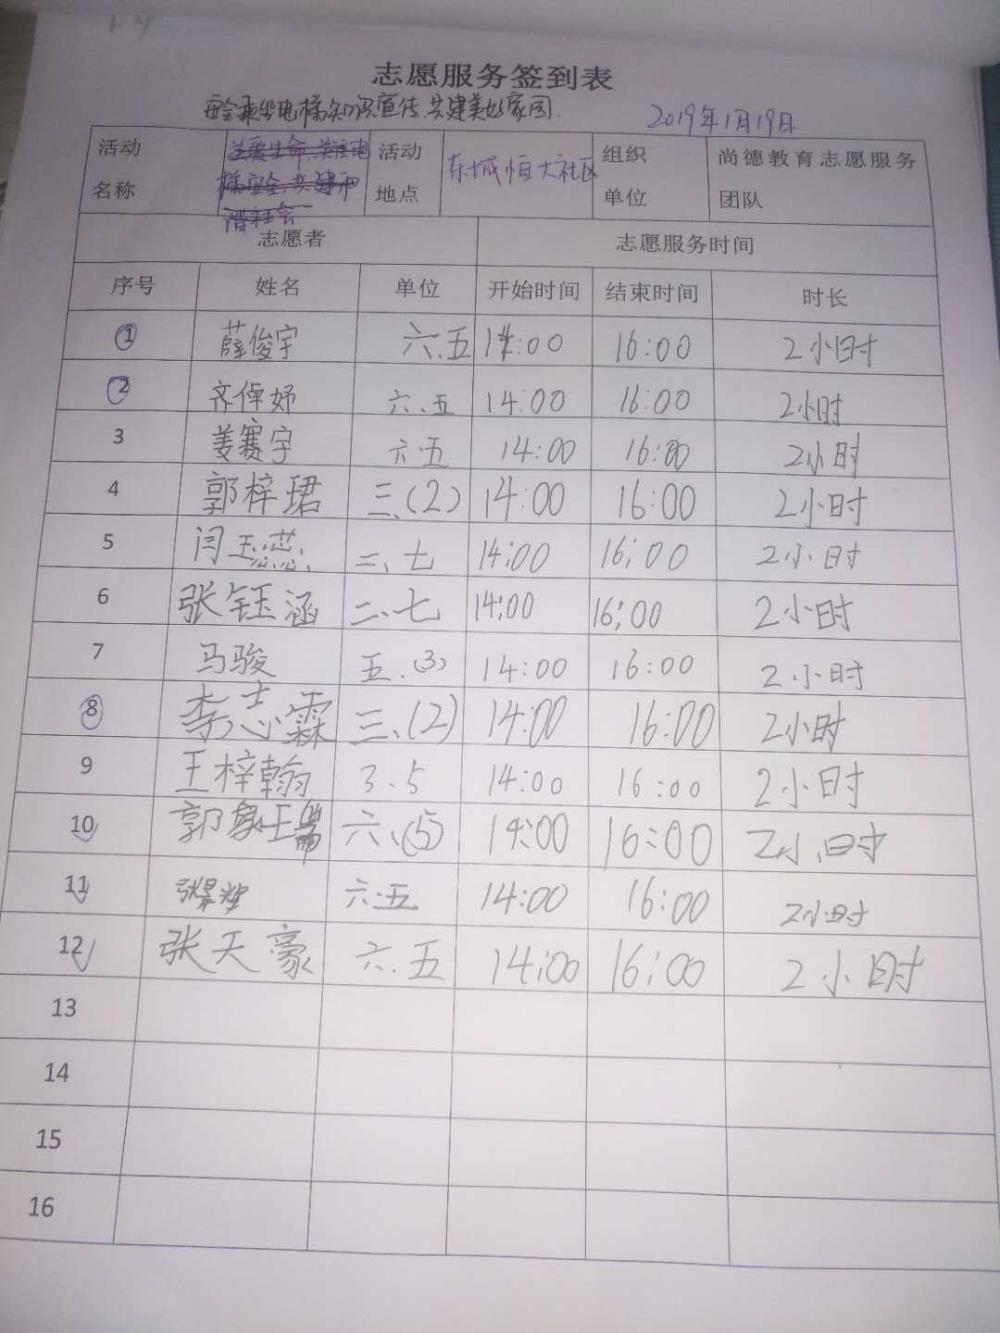 志愿服务签到表
安全乘坐电梯知识宣传 共建美好家园.
2019年1月19日
活动名称 关爱生命 关注电梯安全 共建和谐社会 活动地点 东城恒大社区 组织单位 尚德教育志愿服务团队
志愿者 志愿服务时间
序号 姓名 单位 开始时间 结束时间 时长
1 薛俊宇 六.五 14:00 16:00 2小时
2 齐倬妤 六.五 14:00 16:00 2小时
3 姜赛宇 六.五 14:00 16:00 2小时
4 郭梓珺 三.(2) 14:00 16:00 2小时
5 闫玉 二、七 14:00 16:00 2小时
6 张钰涵 二、七 14:00 16:00 2小时
7 马骏 五.(3) 14:00 16:00 2小时
8 李志霖 三.(2) 14:00 16:00 2小时
9 王梓翰 3.5 14:00 16:00 2小时
10 郭 六、(5) 14:00 16:00 2小时
11 张 六.五 14:00 16:00 2小时
12 张天豪 六.五 14:00 16:00 2小时
13
14
15
16